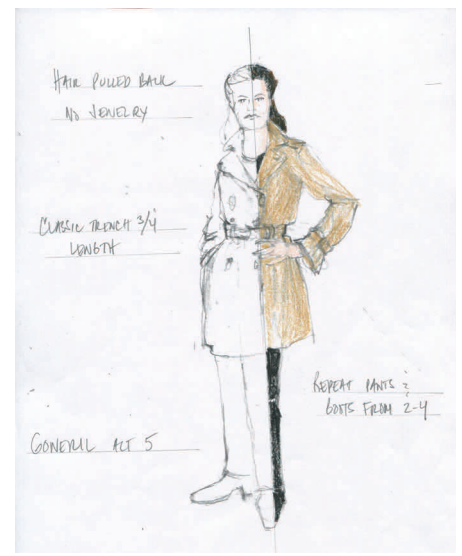 HAIR PULLED BACK
NO JEWELRY
CLASSIC TRENCH 3/4
LENGTH
REPEAT PANTS &
BOOTS FROM 2-4
GONERIL ACT 5